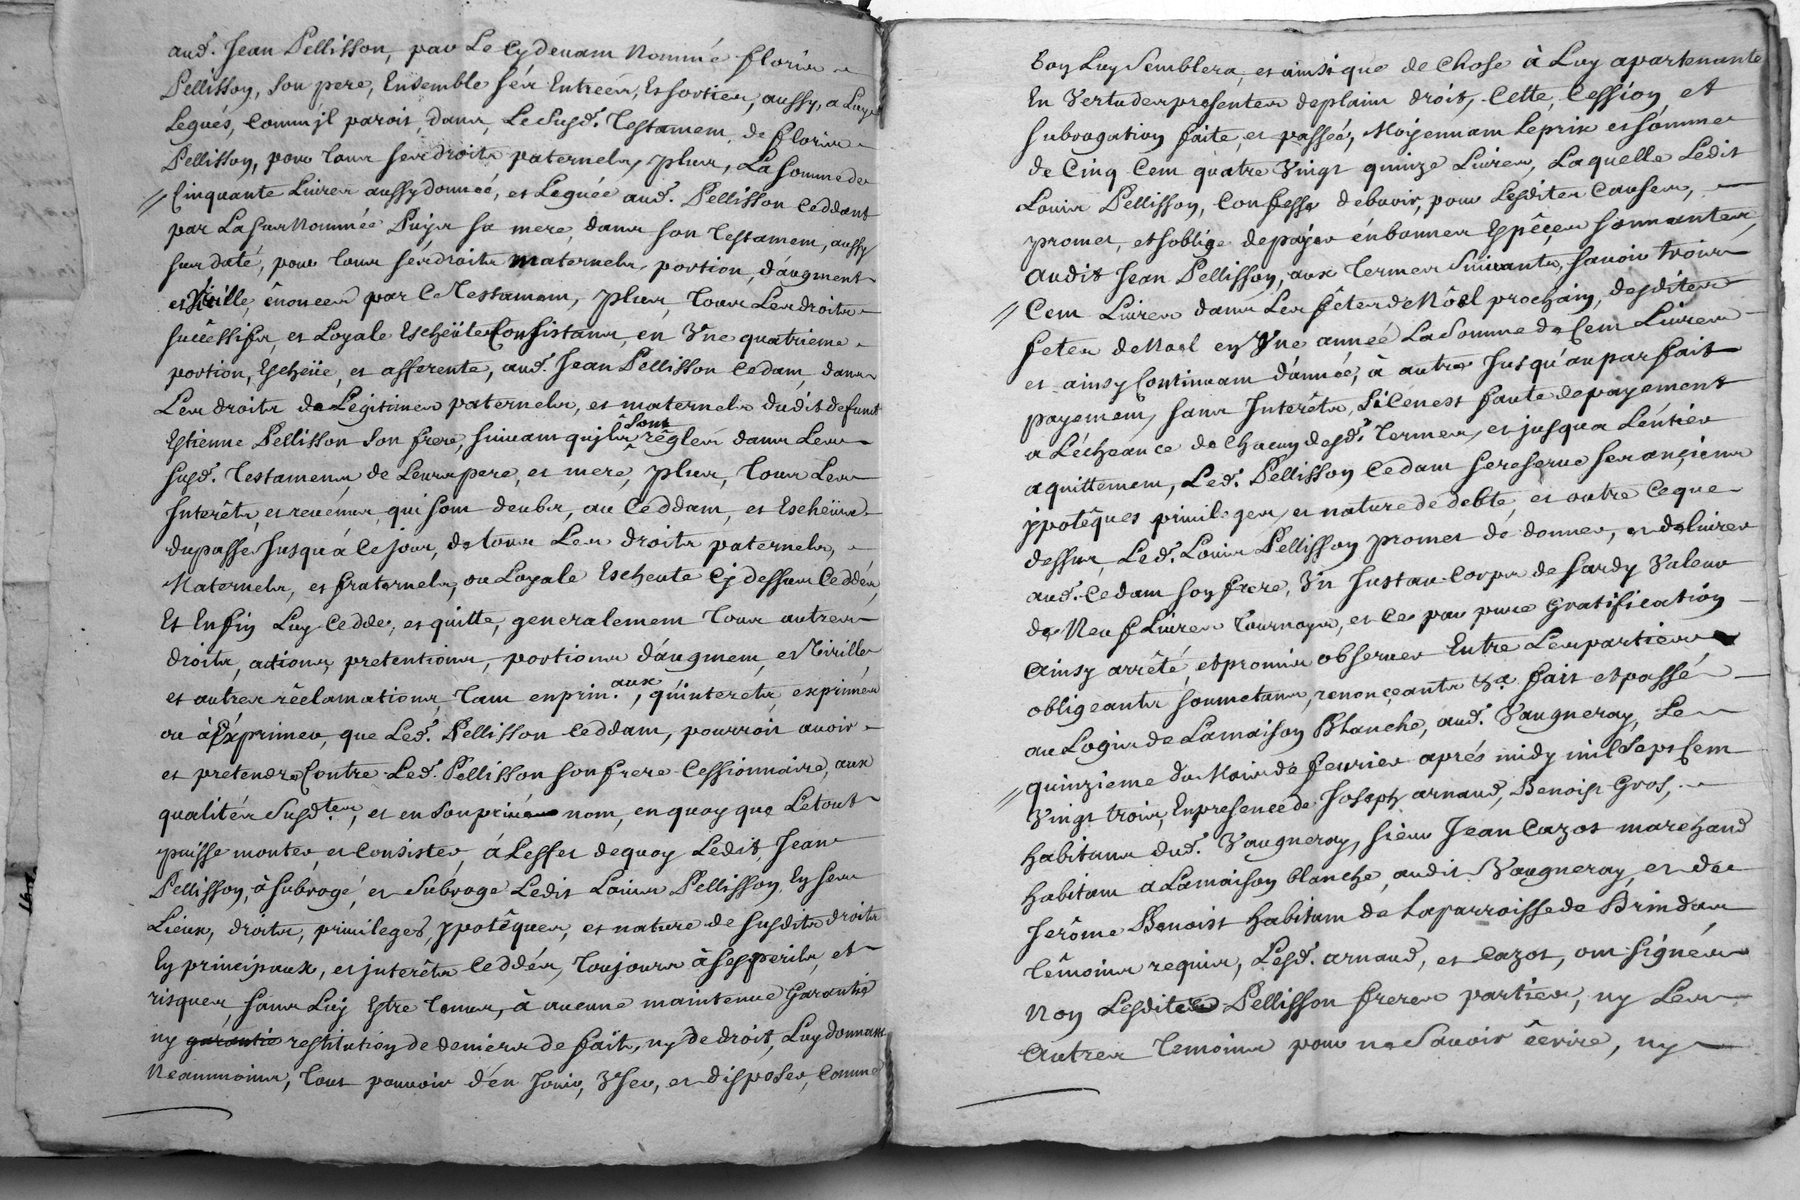 aud. Jean Pellisson, par Le Cydevant Nommé floris
Pellisson, Son pere, Ensemble ses Entrées, Et sorties, aussy, a Luy
Legués, Comm'jl paroit, dans, Le Susd. Testament de floris
Pellisson, pour tous ses droits paternels, plus, La somme de
Cinquante Livres aussy donnée, et Leguée aud. Pellisson Ceddant
par La sus Nommée Puys sa mere, dans son Testament, aussy
sus daté, pour tous ses droits maternels, portion, d'augment
et Virille, énoncés par Ce Testament, plus, tous Les droits
succéssifs, et Loyale Escheüte Consistants, en Vne quatrieme
portion, Escheüe, et afferente, aud. Jean Pellisson Cedant, dans
Les droits de Légitimes paternels, et maternels dudit defunt
Estienne Pellisson Son frere, suivant qu'jls sont réglés dans Les
susd. Testaments, de Leurs pere, et mere, plus, tous Les
Interêts, et revenus, qui sont deubs, au Ceddant, et Escheüs
du passé Jusqu'á Ce jour, de tous Les droits paternels,
Maternels, et fraternels, ou Loyale Escheute Cy dessus Ceddés,
Et Enfin Luy Cedde, et quitte, generalement tous autres
droits, actions, pretentions, portions d'augment, et Virilles
et autres réclamations, tant en prin.aux, qu'interets, exprimés
ou à Exprimer, que Led. Pellisson Ceddant, pourroit avoir
et pretendre Contre Led. Pellisson son frere Cessionnaire, aux
qualités Susd.tes, et en Son privé nom, en quoy que Le tout
puisse monter, et Consister, á L'effet de quoy Ledit Jean
Pellisson, á subrogé, et Subroge Ledit Louis Pellisson En ses
Lieux, droits, privileges, ypotêques, et nature de susdits droits
En principaux, et jnterêts Ceddés, toujours à ses perils, et
risques, sans Luy Estre tenus, à aucune maintenue Garantie
ny garantie restitution de deniers de fait, ny de droit, Luy donnant
Neanmoins, tout pouvoir d'en Jouir, Vser, et disposer, Comme
bon Luy Semblera, et ainsi que de Chose à Luy apartenante
En Vertu des presentes de plain droit, Cette, Cession, et
Subrogation faite, et passée, Moyennant Le prix et somme
de Cinq Cent quatre Vingt quinze Livres, Laquelle Ledit
Louis Pellisson, Confesse debvoir, pour Lesdites Causes,
promet, et soblige de payer en bonnes Espêces sonnantes,
audit Jean Pellisson, aux termes Suivants, savoir trois
Cent Livres dans Les fêtes de Nöel prochain, desdites
fetes de Noel en Vne année La Somme de Cent Livres
et ainsy Continuant d'année, à autre Jusqu'au parfait
payement, sans Interêts, Si Cen'est faute de payement
a L'écheance de Chacun desd. termes, et jusqu'a L'entier
aquittement, Led. Pellisson Cedant se reserve ses anciens
ypotêques privileges, et nature de debte, et outre Ce que
dessus, Led. Louis Pellisson promet de donner, et delivrer
aud. Cedant son frere, Vn Justau-Corps de sardy Valeur
de Neuf Livres tournoys, et Ce par pure Gratification
Ainsy arrêté, et promis observer Entre Les parties
obligeants soumetants, renonçeants &a. fait et passé
au Logis de Lamaison Blanche, aud. Vaugneray, Le
quinzieme du Mois de fevrier aprés midy mil Sept Cent
Vingt trois, En presence de Joseph arnaud, Benoist Gros,
habitans dud. Vaugneray, sieur Jean Cazot marchand
habitant a Lamaison blanche, audit Vaugneray, et de
Jerôme Benoist habitant de La parroisse de Brindas
têmoins requis, Lesd. arnaud, et Cazot, ont signés
Non Lesdites Pellisson freres parties, ny Les
Autres temoins pour ne Savoir écrire, ny